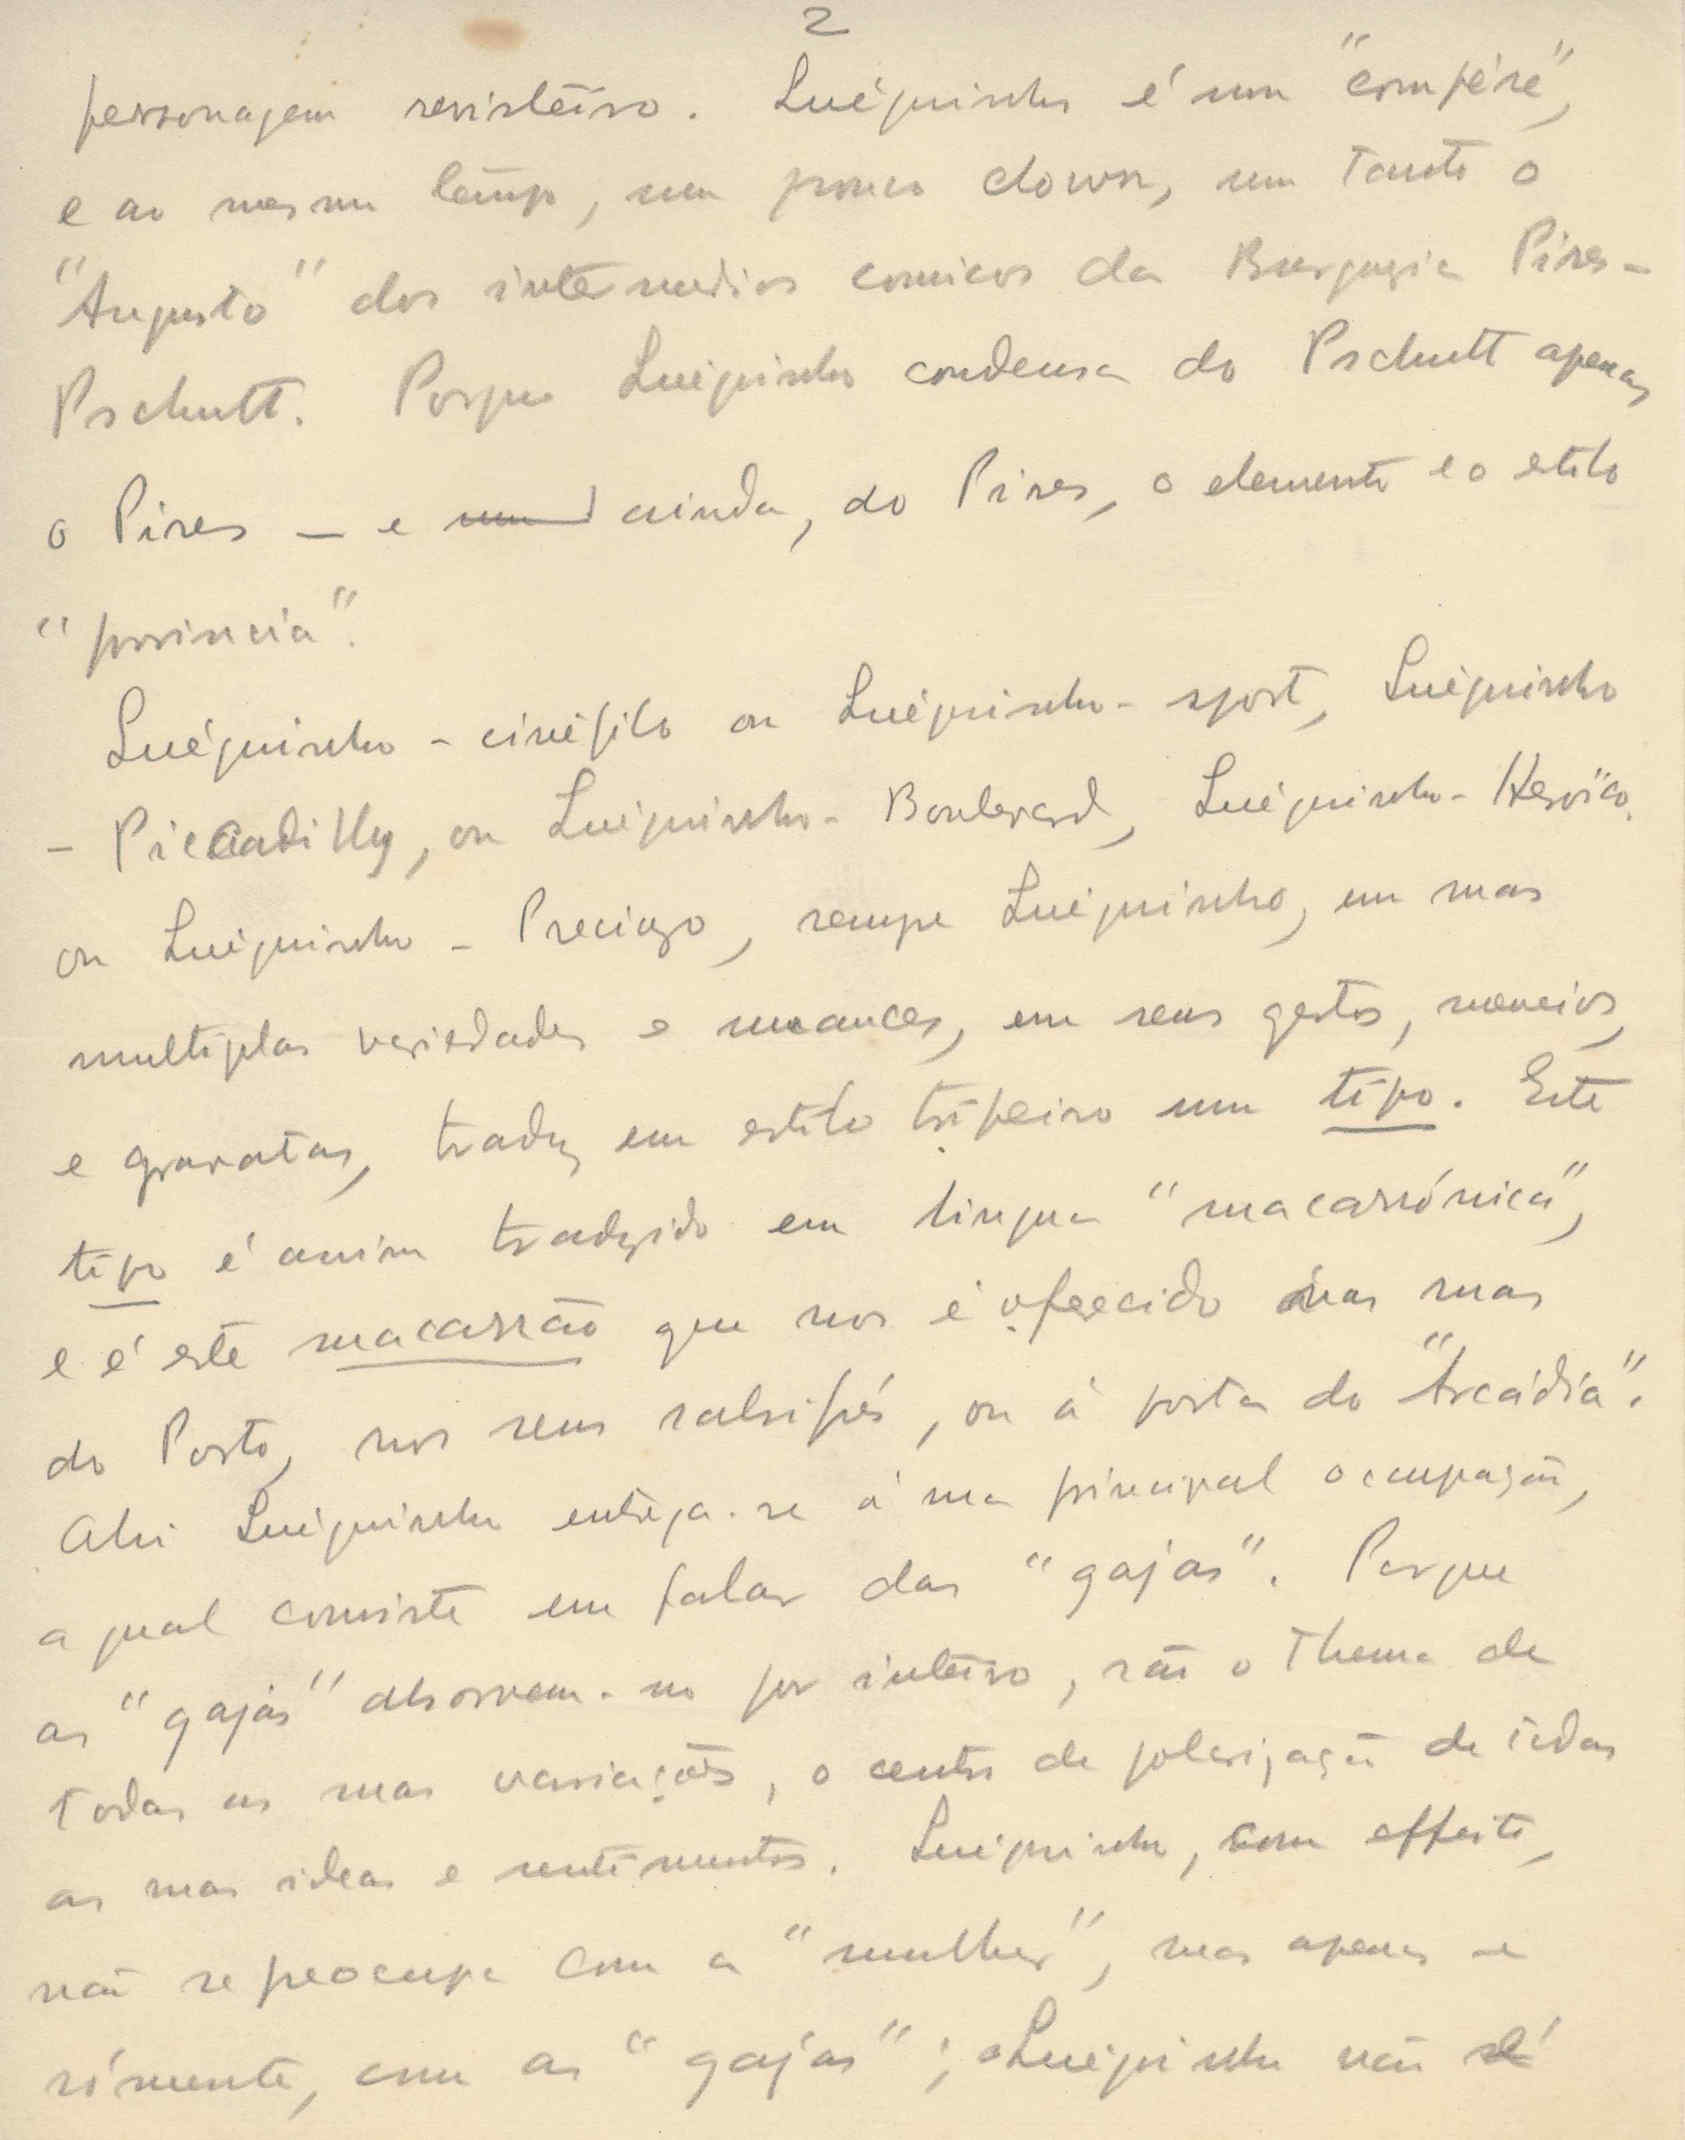 2
personagem revisteiro. Luéquinha é um "compére",
e ao mesmo tempo, um pouco clown, um tanto o
"Augusto" dos intermedios comicos da Burguezia Pires-
Pschutt. Porque Luéquinho condensa do Pschutt apenas
o Pires — e ainda, do Pires, o elemento e o estilo
"provincia".
Luéquinho - cinéfilo ou Luéquinho - sport, Luéquinho
- Piccadilly, ou Luéquinho - Boulevard, Luéquinho - Heroico,
ou Luéquinho - Preciozo, sempre Luéquinho, em suas
multiplas variedades e nuances, em seus gestos, meneios,
e gravatas, traduz em estilo tripeiro um tipo. Este
tipo é assim traduzido em lingua "macarrónica",
e é este macarrão que nos é oferecido nas ruas
do Porto, nos seus salsifrés, ou á porta do "Arcádia".
Ahi Luéquinho entrega-se á sua principal occupação,
a qual consiste em falar das "gajas". Porque
as "gajas" absorvem-no por inteiro, são o thema de
todas as suas variações, o centro de polarização de todas
as suas ideas e sentimentos. Luéquinho, com effeito,
não se preocupa com a "mulher", mas apenas e
sómente, com as "gajas"; Luéquinho não